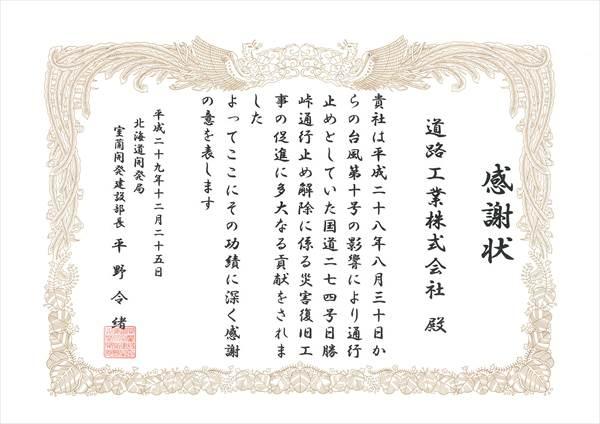 感謝状
道路工業株式会社 殿
貴社は平成二十八年八月三十日か
らの台風第十号の影響により通行
止めとしていた国道二七四号日勝
峠通行止め解除に係る災害復旧工
事の促進に多大なる貢献をされま
した
よってここにその功績に深く感謝
の意を表します
平成二十九年十二月二十五日
北海道開発局
室蘭開発建設部長 平野令緒